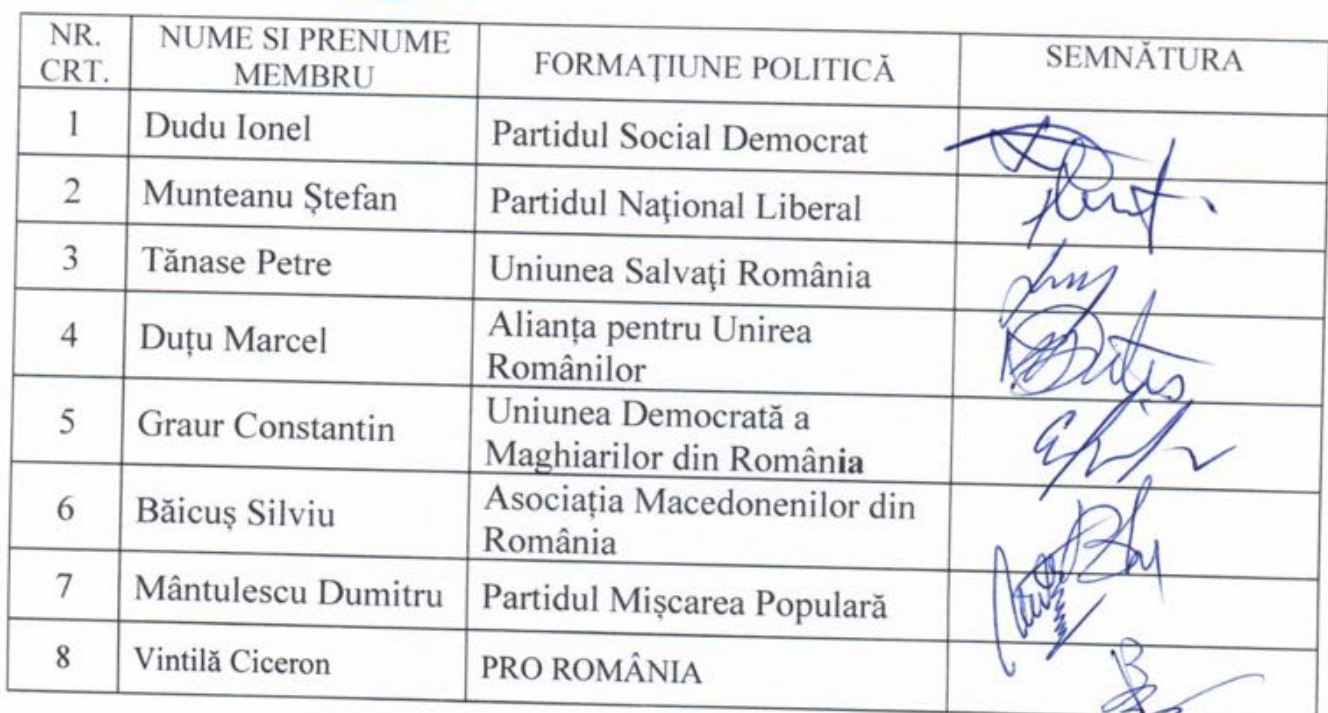 NR. CRT. NUME SI PRENUME MEMBRU FORMAŢIUNE POLITICĂ SEMNĂTURA
1 Dudu Ionel Partidul Social Democrat
2 Munteanu Ștefan Partidul Naţional Liberal
3 Tănase Petre Uniunea Salvaţi România
4 Duțu Marcel Alianța pentru Unirea
Românilor
5 Graur Constantin Uniunea Democrată a
Maghiarilor din România
6 Băicuș Silviu Asociația Macedonenilor din
România
7 Mântulescu Dumitru Partidul Mișcarea Populară
8 Vintilă Ciceron PRO ROMÂNIA